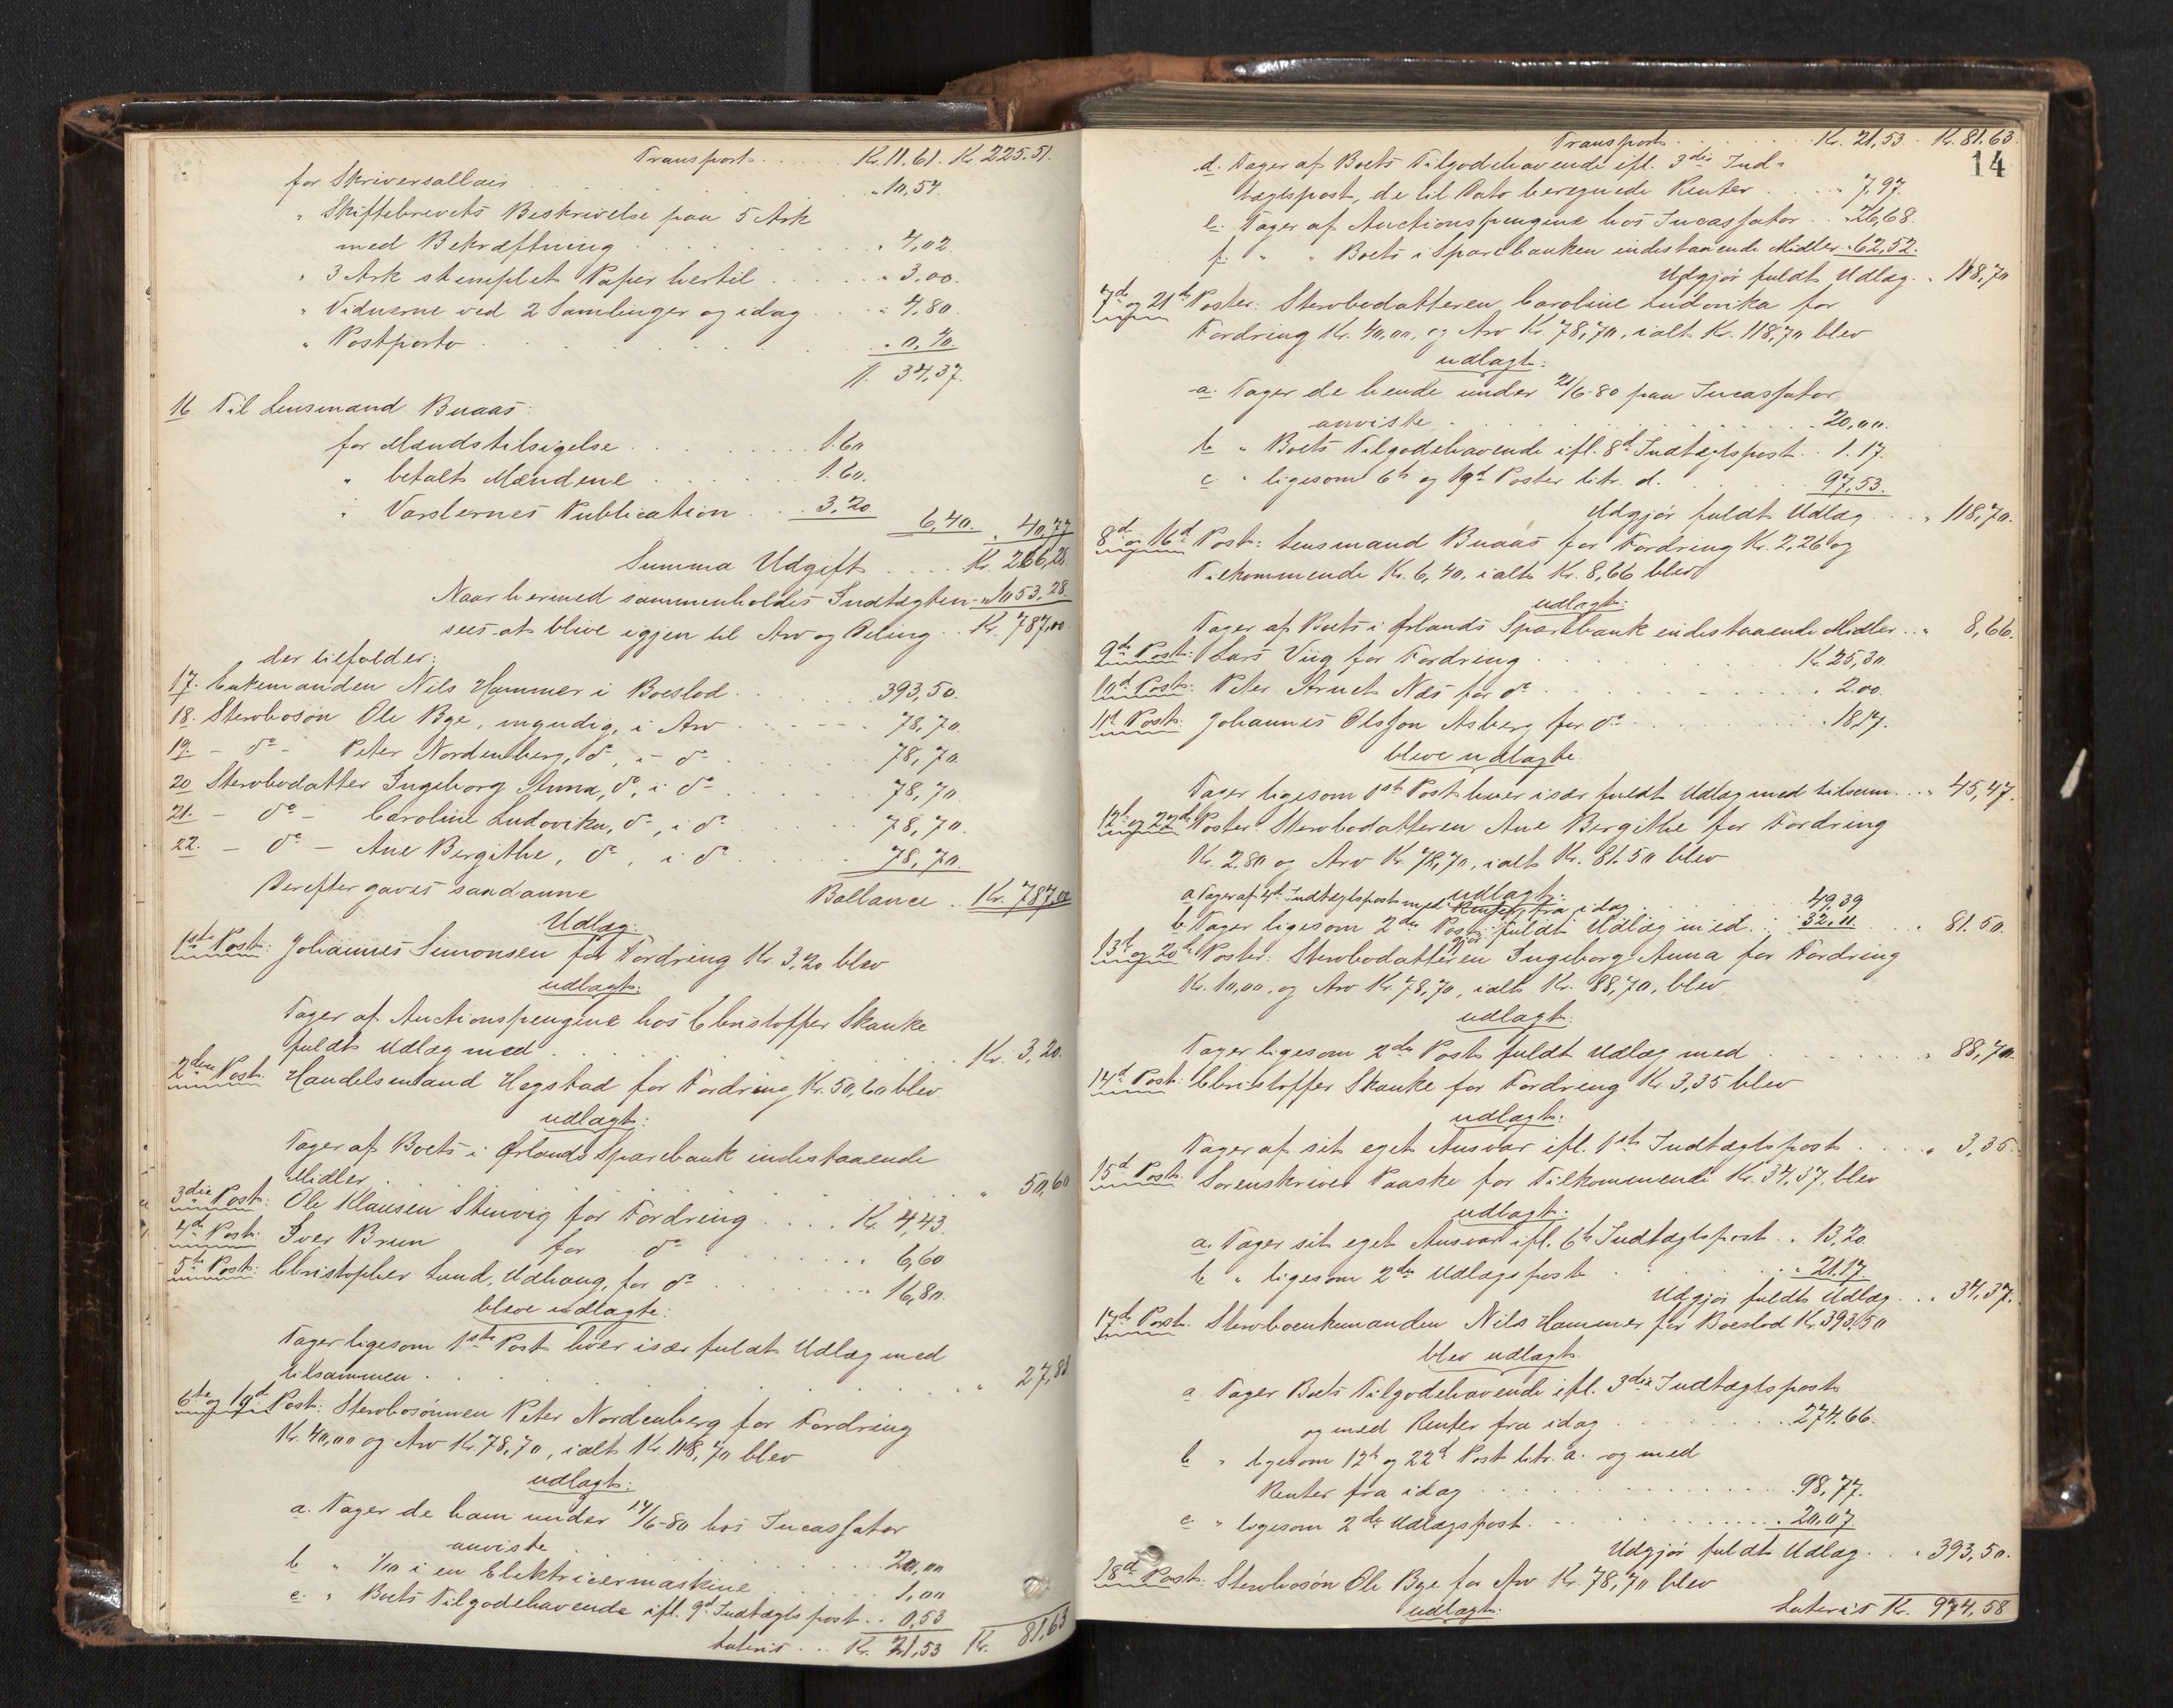 Transport . . . . . Kr. 11.61. Kr. 225.51.
for Skriversallair . . . . . „ 10,54
„ Skiftebrevets Beskrivelse paa 5 Ark
med Bekræftning . . . . . „ 4,02
„ 3 Ark stemplet Papir hertil . . . . . „ 3,00.
„ Vidnerne ved 2 Samlinger og idag . . . „ 4,80
„ Postporto . . . . . „ 0,40.
34,37.
16 Til Lensmand Buaas:
for Mandstilsigelse . . . . . 1.60
„ betalt Mændene . . . . . 1.60.
„ Varslernes Publication . . . 3,20
6,40. „ 40,77
Summa Udgift . . . . Kr. 266,28.
Naar hermed sammenholdes Indtægten „ 1053,28.
sees at blive igjen til Arv og Deling . . Kr. 787,00.
der tilfalder:
17. Enkemanden Nils Hammer i Boeslod . . . 393,50.
18. Stervbosøn Ole Bye, myndig, i Arv . . . . . 78,70.
19. - do - Peter Nordenberg, do, - do . . . . . 78,70.
20 Stervbodatter Ingeborg Anna, do, i do . . . . . 78,70.
21. - do - Caroline Ludovika, do, i do . . . . . 78,70.
22. - do - Ane Bergithe, do, i do . . . . . 78,70.
Derefter gaves saadanne Ballance . Kr. 787,00
Udlæg:
1ste Post: Johannes Simonsen for Fordring Kr. 3,20 blev
udlagt:
Tager af Auctionspengene hos Christoffer Skanke
fuldt Udlæg med . . . . . Kr. 3,20.
2den Post: Handelsmand Hegstad for Fordring Kr. 50,60 blev
udlagt:
Tager af Boets i Ørlands Sparebank indestaaende
Midler . . . . . „ 50,60
3die Post: Ole Klausen Stenvig for Fordring . . . . Kr. 4,43
4de Post: Iver Brun for do . . . . . „ 6,60
5te Post: Christopher Lund, Udhaug, for do . . . . . 16,80.
bleve udlagte:
Tager ligesom 1ste Post hver især fuldt Udlæg med
tilsammen . . . . . „ 27,83
6te og 19d Post: Stervbosønnen Peter Nordenberg for Fordring
Kr. 40,00 og Arv Kr. 78,70, ialt Kr. 118,70 blev
udlagt:
a. Tager de ham under 14/6-80 hos Incassator
anviste . . . . . 20,00
b „ 1/10 i en Elektricermaskine . . . . . 1,00
c. „ Boets Tilgodehavende ifl. 9d Indtægtspost . . 0,53
Lateris . . . Kr. 21,53 Kr. 81,63
14
Transport . . . . . Kr. 21,53. Kr. 81.63.
d. Tager af Boets Tilgodehavende ifl. 3die Ind-
tægtspost, de til Dato beregnede Renter . . . . „ 7,97.
e. Tager af Auctionspengene hos Incassator . . „ 26,68.
f. „ „ Boets i Sparebanken indestaaende Midler „ 62,52.
Udgjør fuldt Udlæg . „ 118,70
7de og 21d Poster: Stervbodatteren Caroline Ludovika for
Fordring Kr. 40,00, og Arv Kr. 78,70, ialt Kr. 118,70 blev
udlagt:
a. Tager de hende under 21/6-80 paa Incassator
anviste . . . . . 20,00.
b „ Boets Tilgodehavende ifl. 8d Indtægtspost . . 1.17.
c „ ligesom 6te og 19d Poster litr. d. . . . . . 97,53.
Udgjør fuldt Udlæg . . . „ 118,70.
8d og 16d Post: Lensmand Buaas for Fordring Kr. 2,26 og
Tilkommende Kr. 6,40, ialt Kr. 8,66 blev
udlagt:
Tager af Boets i Ørlands Sparebank indestaaende Midler . . „ 8,66.
9de Post: Lars Viig for Fordring . . . . . Kr. 25,30.
10d Post: Peter Arnet Næs for do . . . . . „ 2.00.
11t Post: Johannes Olsson Asberg for do . . . . . 18,17.
bleve udlagte.
Tager ligesom 1ste Post hver især fuldt Udlæg med tilsam. . . „ 45,47.
12te og 22d Poster: Stervbodatteren Ane Bergithe for Fordring
Kr. 2,80 og Arv Kr. 78,70, ialt Kr. 81.50 blev
udlagt:
a Tager af 4d Indtægtspost med Renter fra idag . . . . . 49,39
b Tager ligesom 2den Post fuldt Udlæg med . . 32.11 . . . „ 81.50.
13de og 20d Poster: Stervbodatteren Ingeborg Anna for Fordring
Kr. 10,00, og Arv Kr. 78,70, ialt Kr. 88,70, blev
udlagt:
Tager ligesom 2den Post fuldt Udlæg med . . . . . „ 88,70.
14d Post: Christoffer Skanke for Fordring Kr. 3,35 blev
udlagt:
Tager af sit eget Ansvar ifl. 1ste Indtægtspost . . . . „ 3,35.
15d Post: Sorenskriver Paaske for Tilkommende Kr. 34,37, blev
udlagt:
a. Tager sit eget Ansvar ifl. 6te Indtægtspost . „ 13,20
b „ ligesom 2den Udlægspost . . . . . „ 21.17
Udgjør fuldt Udlæg . . . „ 34,37.
17de Post. Stervboenkemanden Nils Hammer for Boeslod Kr. 393,50
blev udlagt.
a. Tager Boets Tilgodehavende ifl. 3die Indtægtspost
og med Renter fra idag . . . . . 274.66.
b „ ligesom 12te og 22d Post litr. a. og med
Renter fra idag . . . . . 98,77.
c. „ ligesom 2den Udlægspost . . . . . 20,07
Udgjør fuldt Udlæg . . . „ 393,50.
18d Post. Stervbosøn Ole Bye for Arv Kr. 78,70 blev
udlagt: Lateris Kr. 974,58